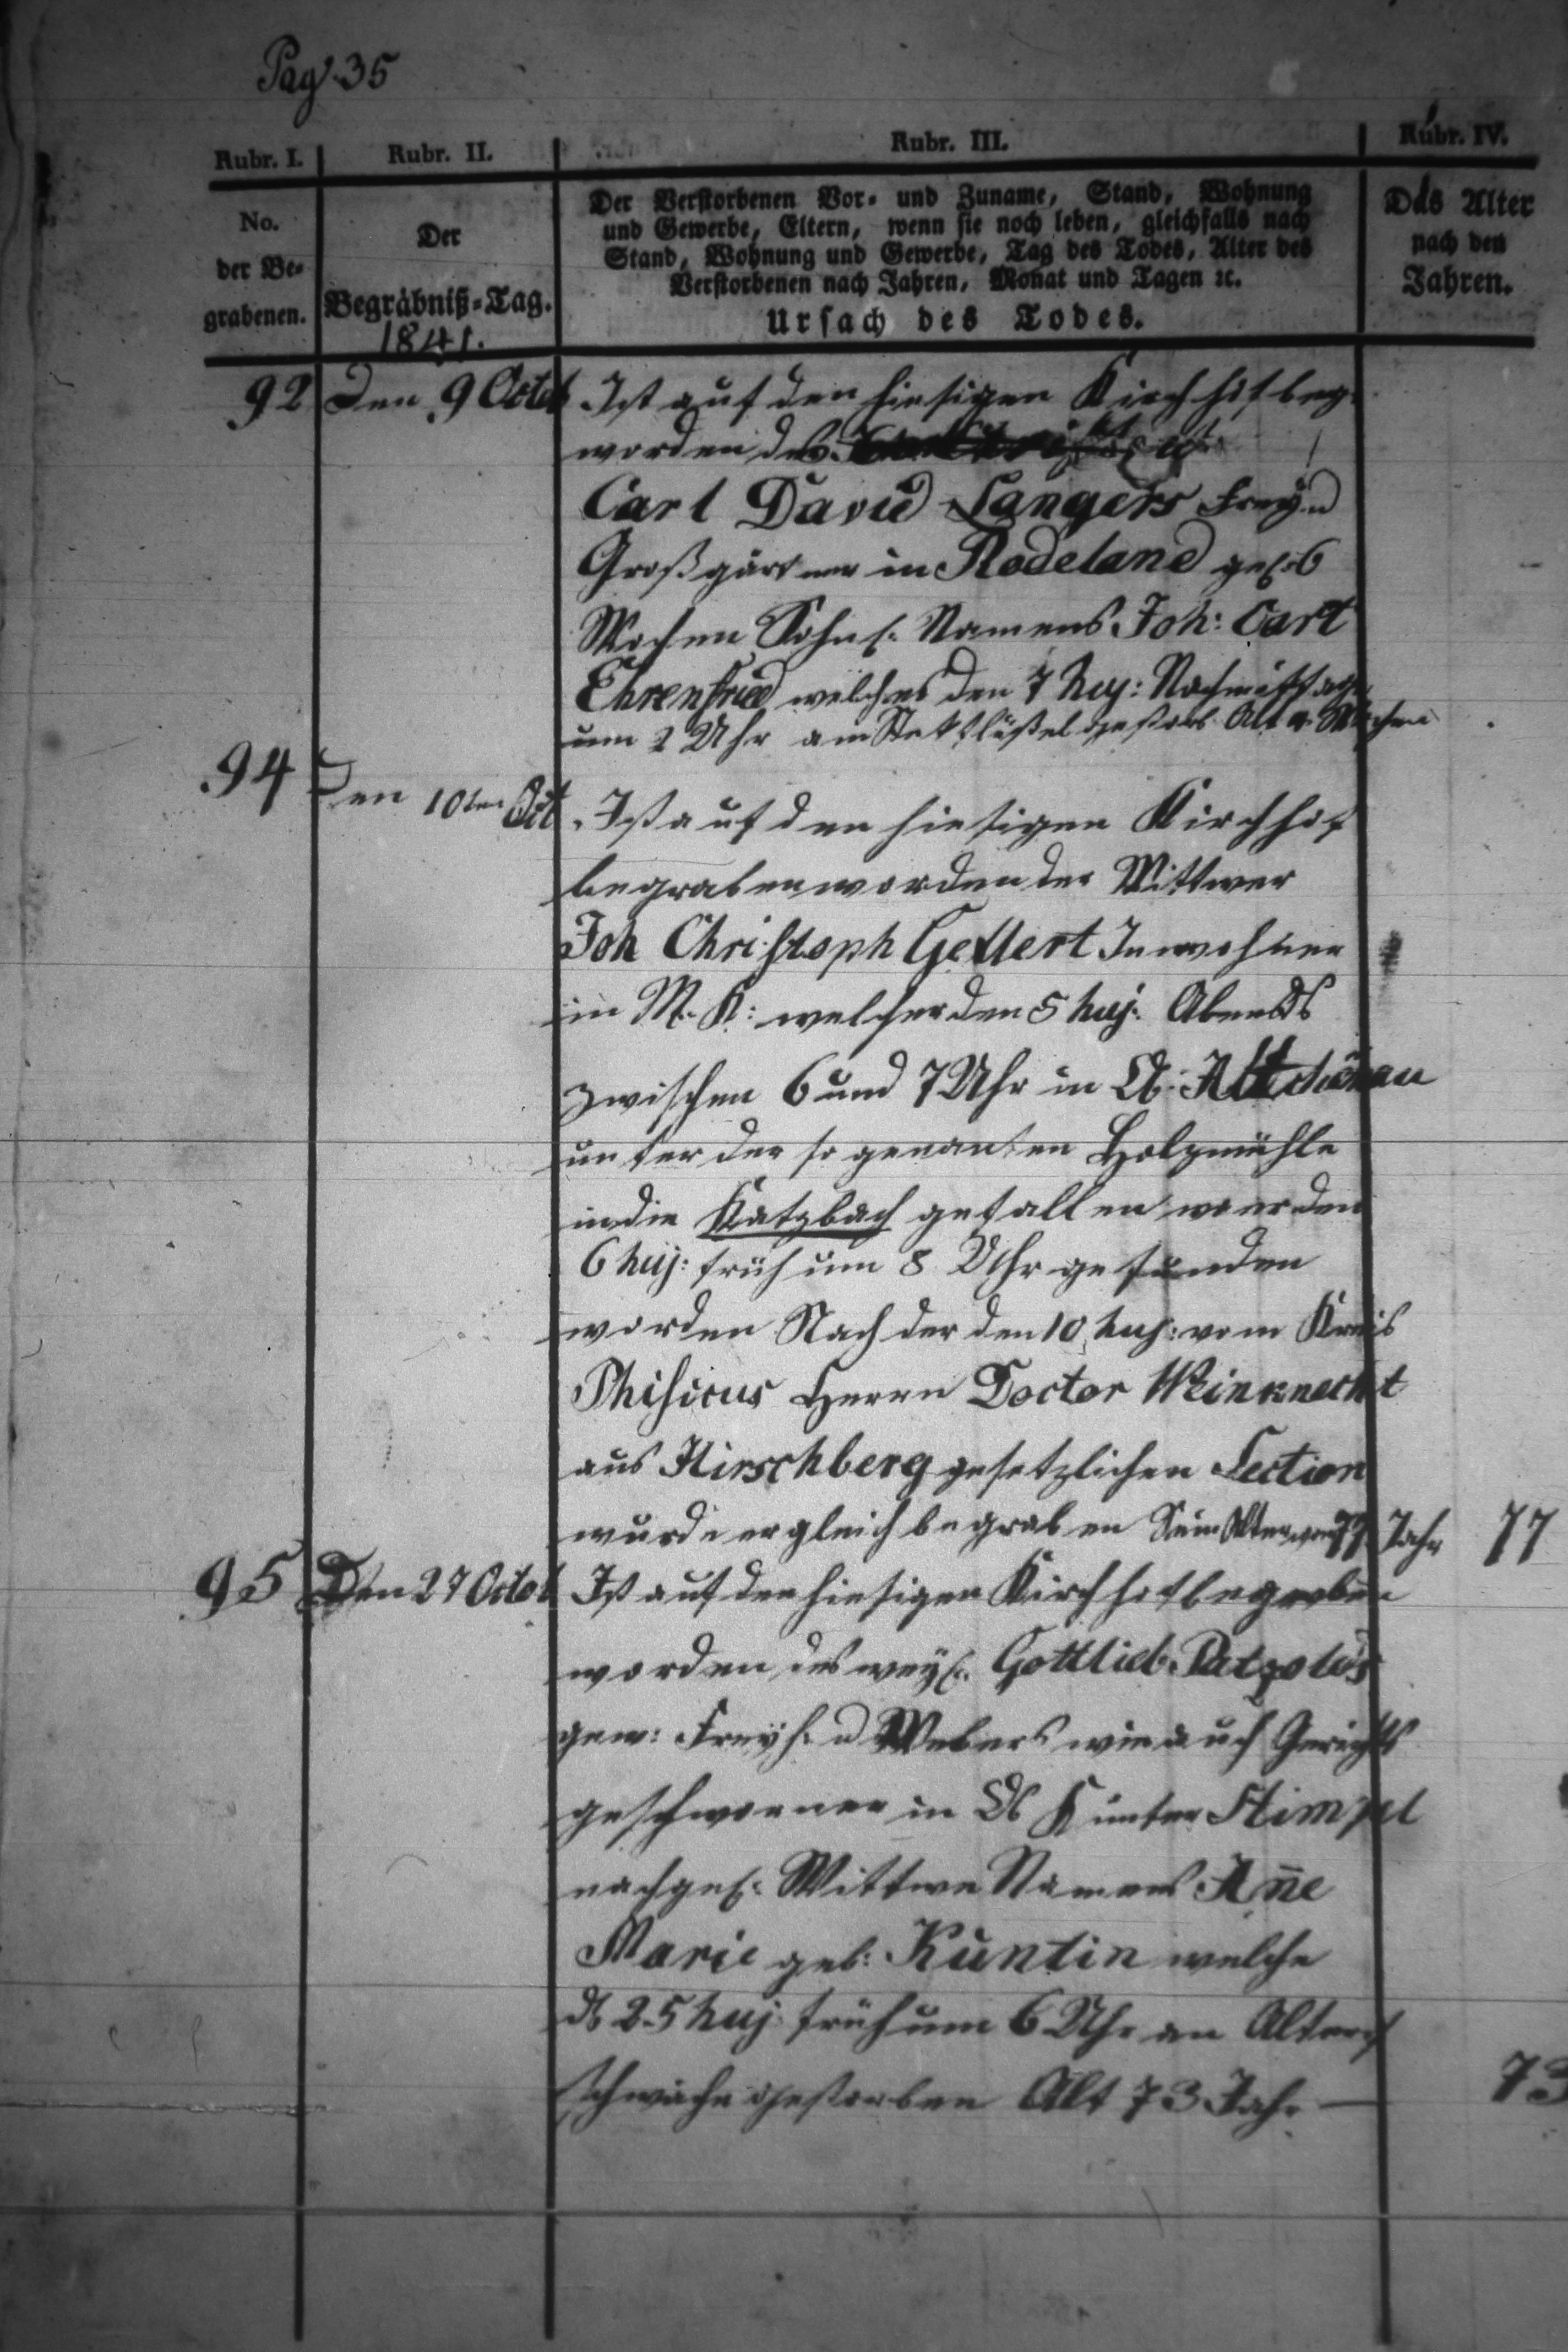 Pag 35
Rubr. I.
Rubr. II.
Rubr. III.
Rubr. IV.
No.
der Be-
grabenen.
Der
Begräbniß-Tag.
1841.
Der Verstorbenen Vor- und Zuname, Stand, Wohnung
und Gewerbe, Eltern, wenn sie noch leben, gleichfalls nach
Stand, Wohnung und Gewerbe, Tag des Todes, Alter des
Verstorbenen nach Jahren, Monat und Tagen ꝛc.
Ursach des Todes.
Das Alter
nach den
Jahren.
92 Den 9 Octob Ist auf den hiesigen Kirchhof beg.
worden des
Carl David Langers Frey u
Großgärtner in Rodeland
Wochen Sohnl. Namens Joh: Carl
Ehrenfried welches den 7 huj: Nachmittags
um 2 Uhr am gestorb. Alt Wochen
94 Den 10ten Oct Ist auf den hiesigen Kirchhof
begraben worden der Wittwer
Joh Christoph Gellert Inwohner
in M. K: welcher den 5 huj. Abends
zwischen 6 und 7 Uhr in Altschönau
unter der so genanten Holzmühle
in die Katzbach gefallen u
6 huj: früh um 8 Uhr gefunden
worden Nach der den 10 huj: vom Kreis
Phisicus Herrn Doctor Weinknecht
aus Hirschberg gesetzlichen Section
wurde er gleich begraben Sein Alter war 77 Jahr 77
95 Den 27 Octob Ist auf den hiesigen Kirchhof begraben
worden des weyl. Gottlieb Patzolds
gew: Freyh. u Webers wie auch Gerichts
geschworner in K unter Stimpel
nachgel: Wittwe Namens Añe
Marie geb: Kuntin welche
d 25 huj früh um 6 Uhr an Alters
schwäche gestorben Alt 73 Jahr — 73